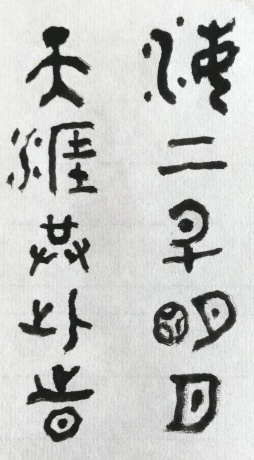 海上升明月
天涯共此旹